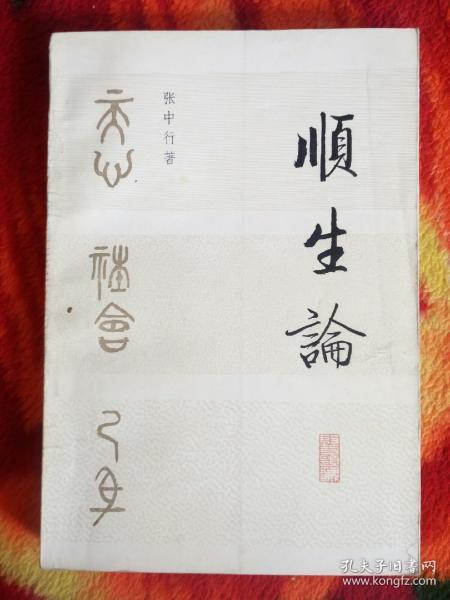 順生論
张中行著
天心
社會
己身
孔夫子旧书网
www.kongfz.com